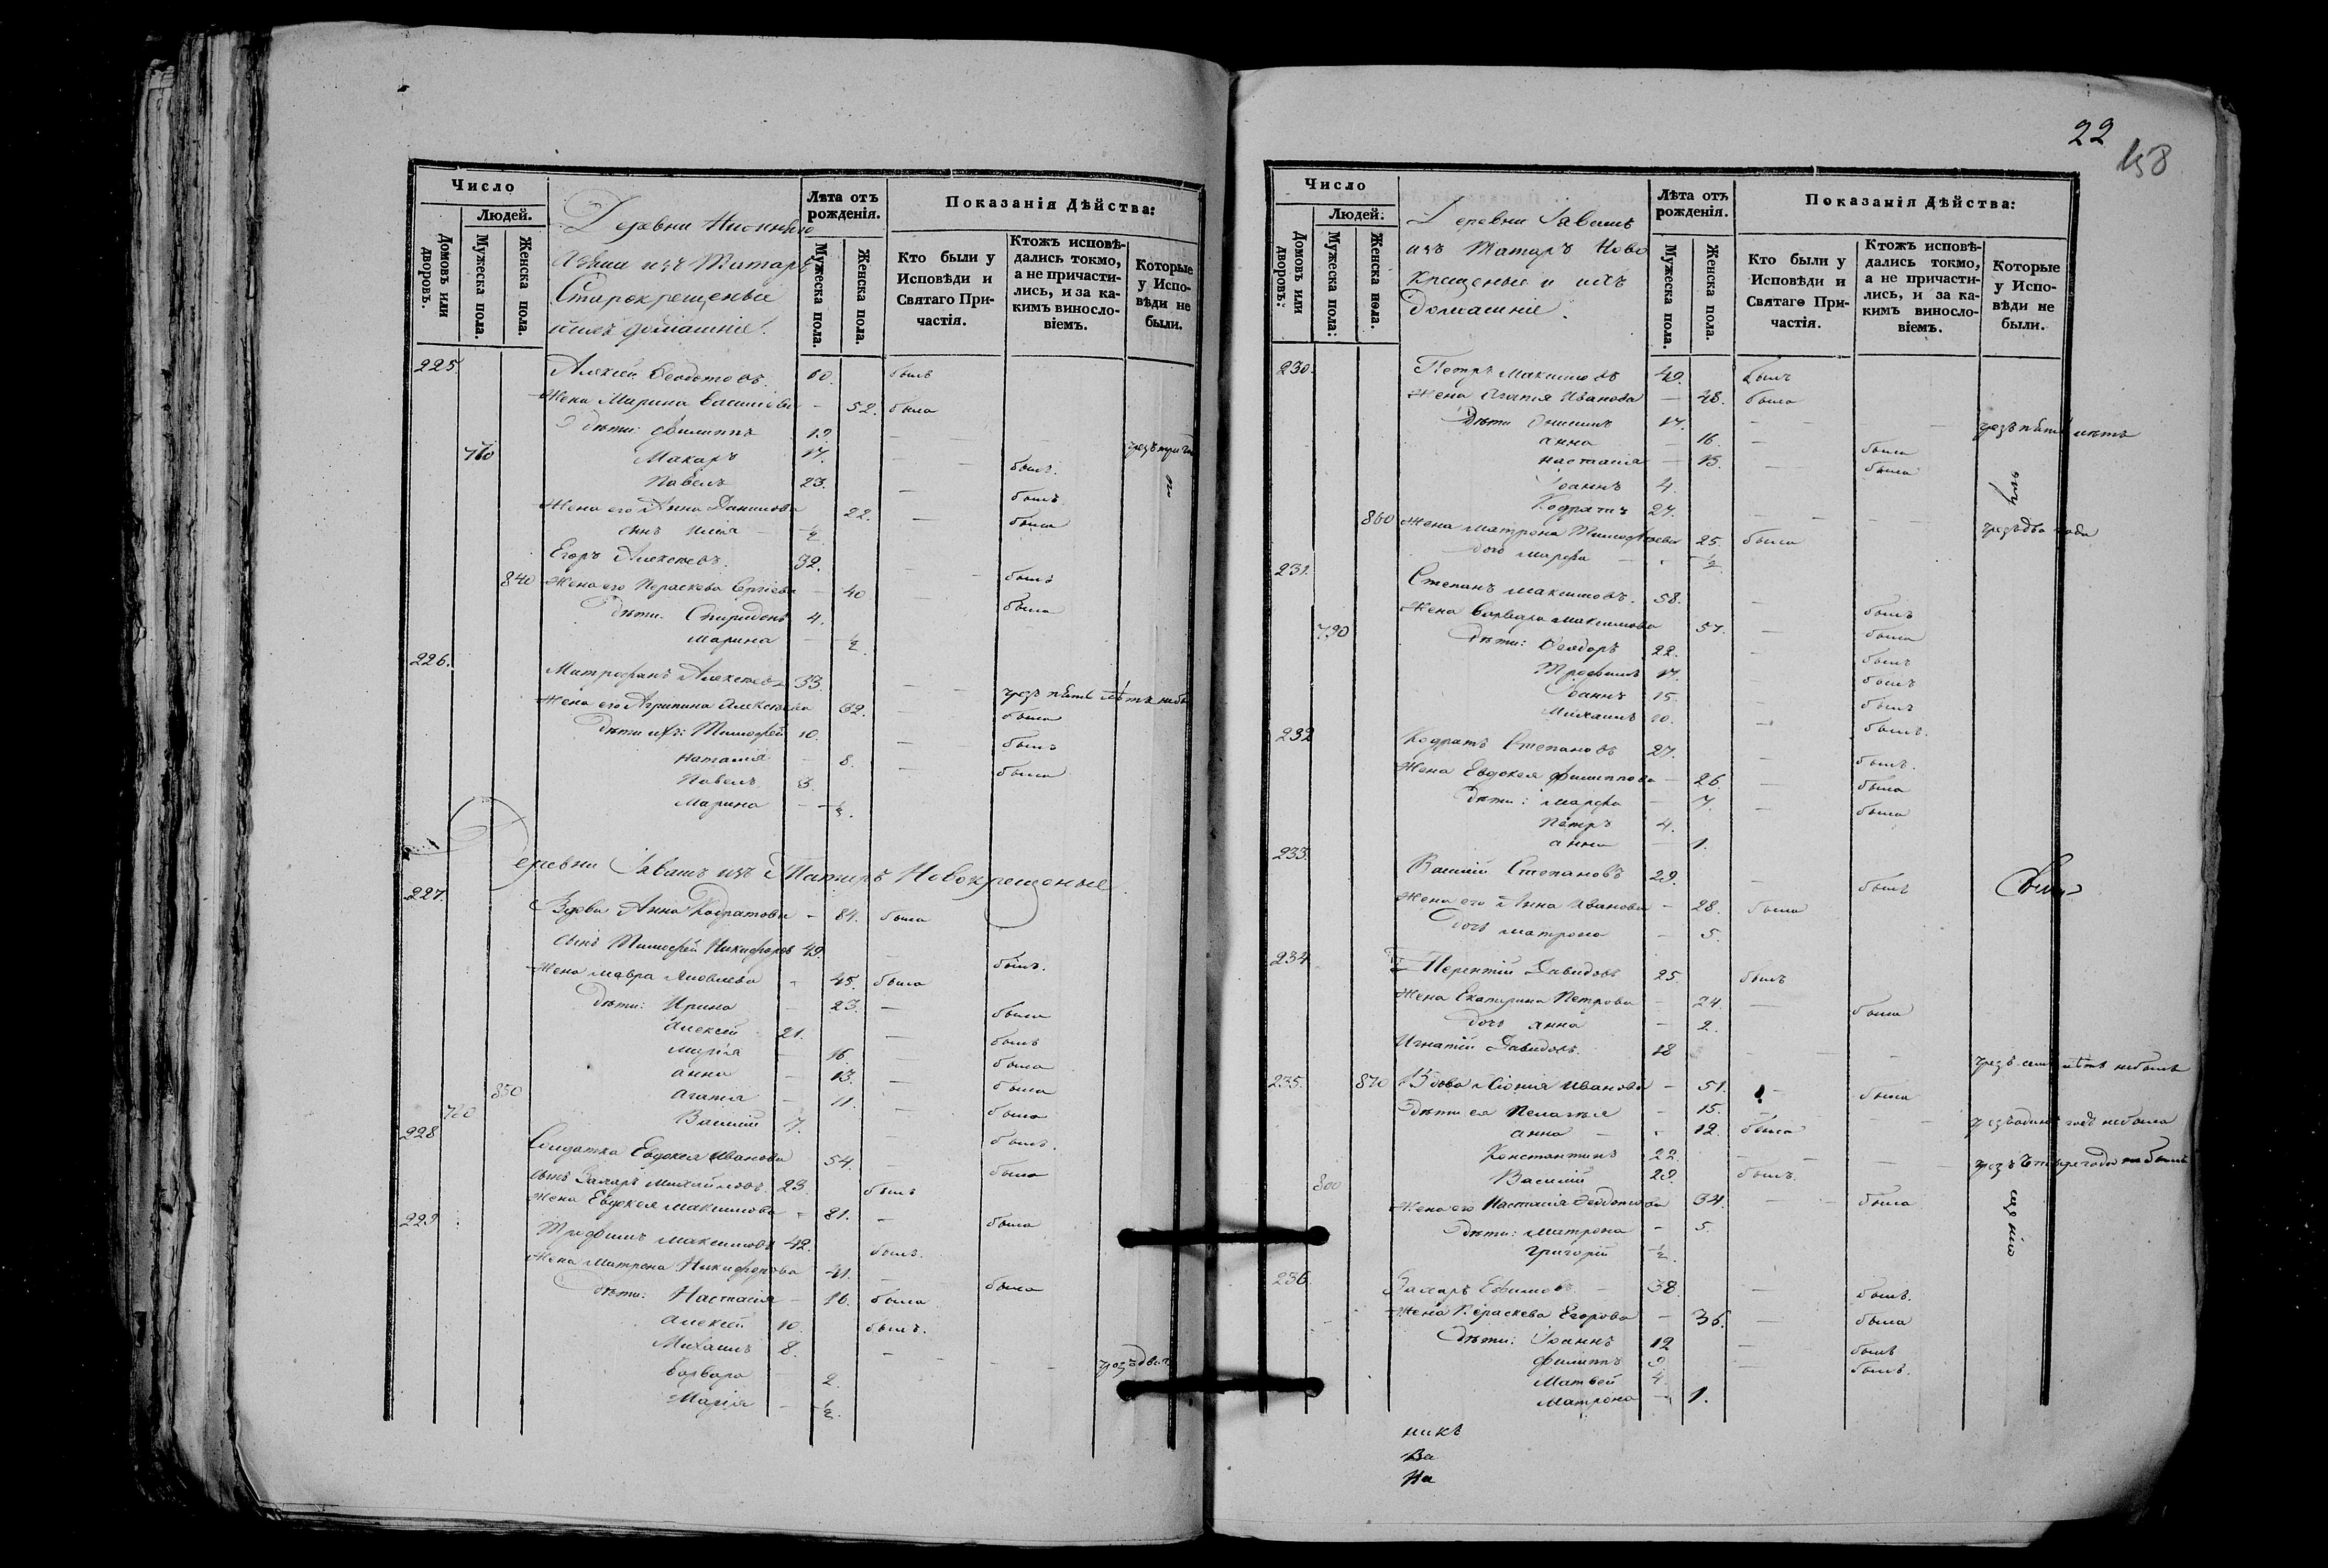 Число
Людей.
Домовъ или дворовъ.
Мужеска пола.
Женска пола.
Деревни
изъ Татаръ
Старокрещеные
ихъ домашніе.
Лѣта отъ рожденія.
Мужеска пола.
Женска пола.
Показанія Дѣйства:
Кто были у Исповѣди и Святаго Причастія.
Ктожъ исповѣдались токмо, а не причастились, и за какимъ винословіемъ.
Которые у Исповѣди не были.
225. Алексей Феодотовъ. 60. былъ
Жена Марина — 52. была
дѣти: Филиппъ 19. — —
760 Макаръ 17. — — былъ.
Павелъ 23. — былъ
Жена его Анна Данилова 22. — была
сынъ Илія ½
Егоръ Алексеевъ. 32. — — былъ
840 Жена его Параскева Сергіева — 40 — была
Дѣти. Спиридонъ 4.
Марина — ½
226. Митрофанъ Алексеевъ 33. — — чрезъ пять лѣтъ
Жена его Агрипина Алексеева 32. — была
Дѣти ихъ: Тимофей 10. — — былъ
Наталія — 8. — была
Павелъ 3.
Марина — ½.
Деревни Савашъ изъ Татаръ Новокрещеные.
227. Вдова Анна Кодратова — 84. была
сынъ Тимофей Никифоровъ 49. — былъ.
Жена Мавра — 45. была
Дѣти: Ирина — 23. — была
Алексей 21. — былъ
Марія — 16. — была
Анна — 13. — была
850 Агафія — 11. — была
760 Василій 7. — былъ.
228 Солдатка Евдокея Иванова 54. — была
сынъ Захаръ Михайловъ. 23. былъ
Жена Евдокея Максимова — 21. — была
229 Трифонъ Максимовъ 42. былъ.
Жена Матрона Никифорова 41. — была
Дѣти: Настасія — 16. была
Алексей 10. былъ.
Михаилъ 8. — — —
Варвара — 2.
Марія — ½.
22
158
Число
Людей.
Домовъ или дворовъ.
Мужеска пола.
Женска пола.
Деревни Савашъ
изъ Татаръ Ново
крещеные и ихъ
домашніе.
Лѣта отъ рожденія.
Мужеска пола.
Женска пола.
Показанія Дѣйства:
Кто были у Исповѣди и Святаго Причастія.
Ктожъ исповѣдались токмо, а не причастились, и за какимъ винословіемъ.
Которые у Исповѣди не были.
230. Петръ Максимовъ 49. былъ
Жена Агафія Иванова — 48. была
Дѣти 17. — — чрезъ пять лѣтъ
Анна — 16 — была
Настасія — 13. — была
Іоаннъ 4.
Кодратъ 27. — — — чрезъ два года
860 Жена Матрона Тимофеева 25. была
дочь Марфа — ½
231. Степанъ Максимовъ. 58. — былъ
Жена Варвара Максимова 57. — была
790 Дѣти: Феодоръ 22. — былъ
Трофимъ 17. — былъ
Іоаннъ 15. — былъ
Михаилъ 10. — былъ.
232 Кодратъ Степановъ 27. — былъ.
Жена Евдокея Филиппова — 26. — была
Дѣти: Марфа — 7. — была
Петръ 4.
Анна — 1.
233. Василій Степановъ 29. — былъ
Жена его Анна Иванова — 28. была
Дочь Матрона — 5.
234 Терентій Давидовъ 25. былъ
Жена Екатерина Петрова — 24. — была
дочь Анна — 2.
Игнатій Давидовъ. 18 — — — чрезъ семь лѣтъ небылъ
235. 870 Вдова Иванова — 51. — была
Дѣти ея Пелагея — 15. — — — чрезъ одинъ годъ небыла
Анна — 12. была
Константинъ 22. — — — чрезъ четыре года небылъ
800 Василій 29. былъ.
Жена его Настасія Феодотова 34. — — была
Дѣти: Матрона — 5.
Григорій ½.
236. Захаръ Ефимовъ — 38. — былъ.
Жена Параскева Егорова — 36. — была
Дѣти: Іоаннъ 12 — былъ
Филиппъ 9 — былъ.
Матвей 4.
Матрона — 1.
никъ
Ва
На